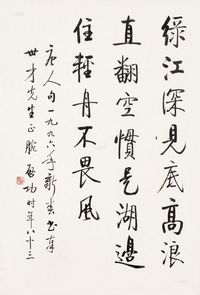 绿江深見底高浪
直翻空慣是湖邊
住輕舟不畏風
唐人句一九九六年新春書奉
世才先生正腕 啟功時年八十三